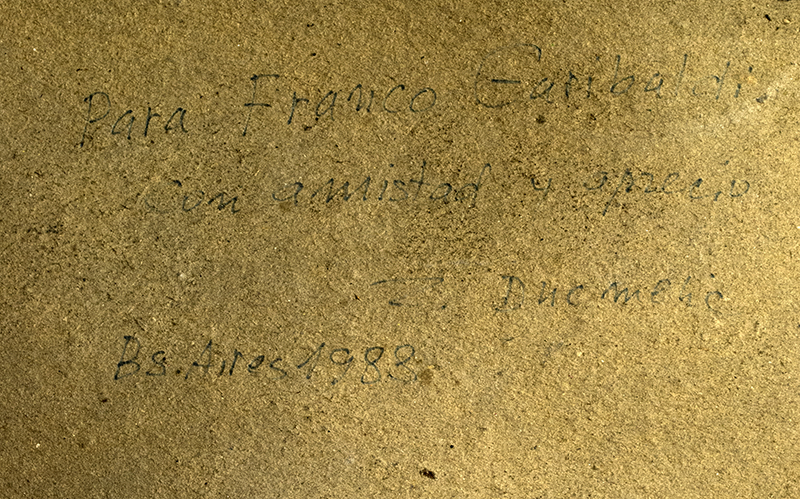 Para Franco Garibaldi
con amistad y aprecio
Bs. Aires 1988